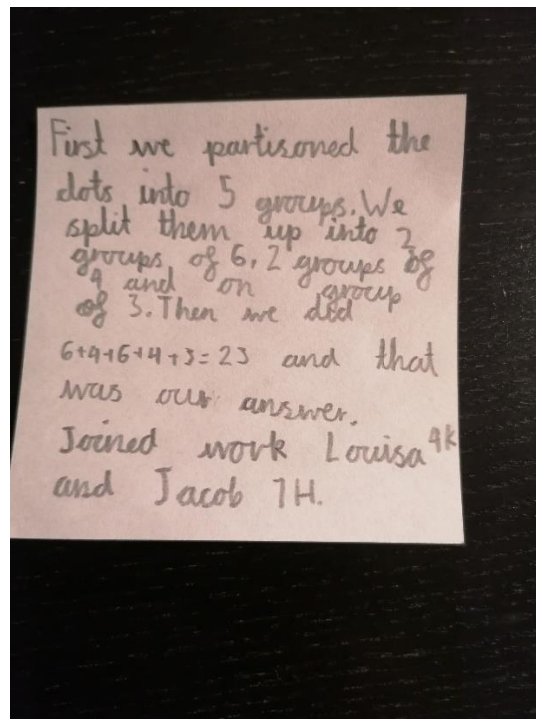 First we partisoned the
dots into 5 groups. We
split them up into 2
groups of 6, 2 groups of
4 and on group
of 3. Then we did
6+4+6+4+3=23 and that
was our answer.
Joined work Louisa 4K
and Jacob 7H.